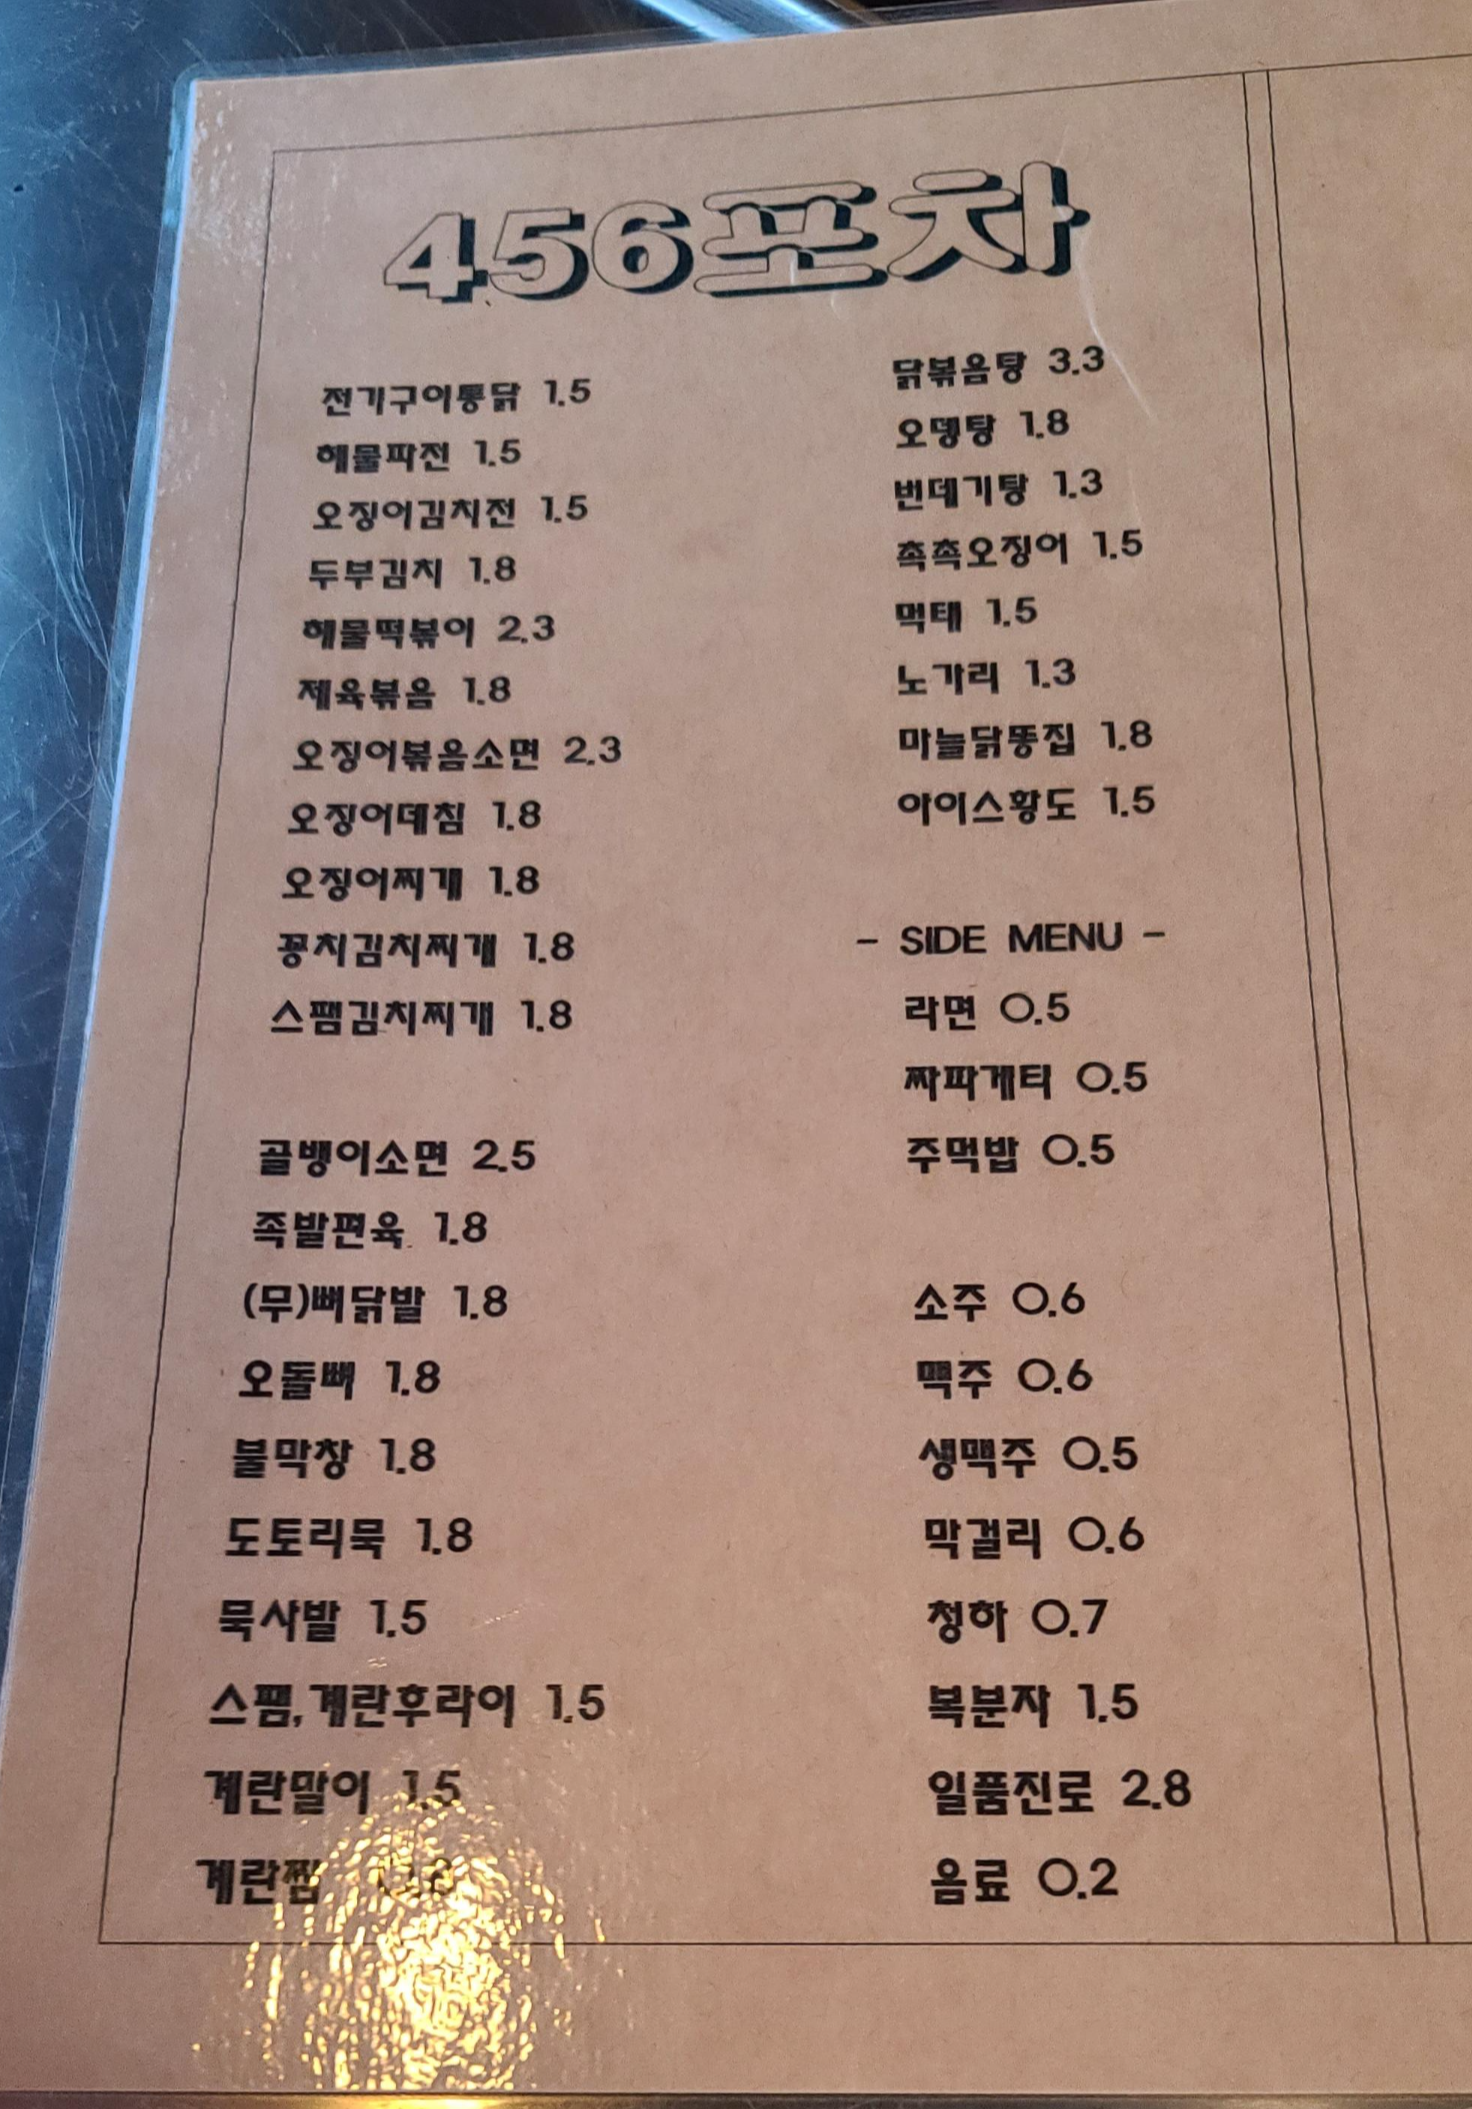 456포차
전기구이통닭 1.5
해물파전 1.5
오징어김치전 1.5
두부김치 1.8
해물떡볶이 2.3
제육볶음 1.8
오징어볶음소면 2.3
오징어데침 1.8
오징어찌개 1.8
꽁치김치찌개 1.8
스팸김치찌개 1.8
골뱅이소면 2.5
족발편육 1.8
(무)뼈닭발 1.8
오돌뼈 1.8
불막창 1.8
도토리묵 1.8
묵사발 1.5
스팸,계란후라이 1.5
계란말이 1.5
계란찜 0.8
닭볶음탕 3.3
오뎅탕 1.8
번데기탕 1.3
촉촉오징어 1.5
먹태 1.5
노가리 1.3
마늘닭똥집 1.8
아이스황도 1.5
- SIDE MENU -
라면 0.5
짜파게티 0.5
주먹밥 0.5
소주 0.6
맥주 0.6
생맥주 0.5
막걸리 0.6
청하 0.7
복분자 1.5
일품진로 2.8
음료 0.2